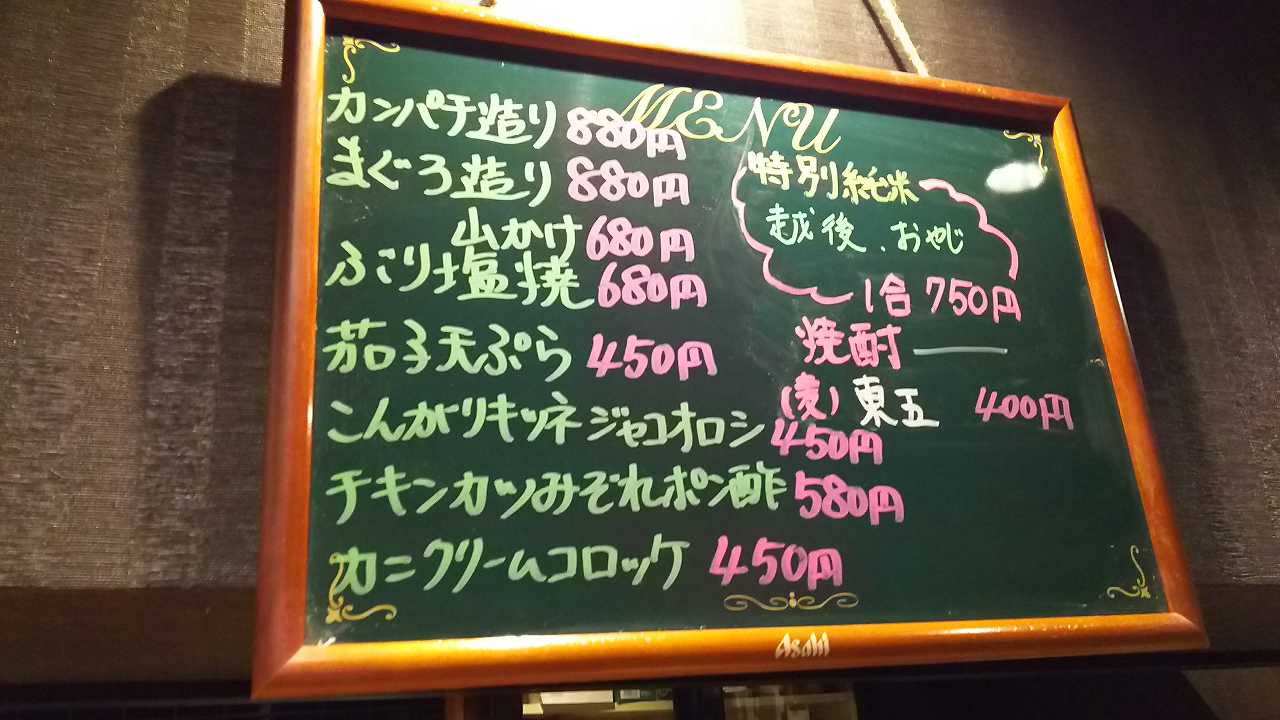 MENU
カンパチ造り 880円
まぐろ造り 880円
山かけ 680円
ぶり塩焼 680円
茄子天ぷら 450円
こんがりキツネジャコオロシ 450円
チキンカツみぞれポン酢 580円
カニクリームコロッケ 450円
特別純米
越後、おやじ
1合 750円
焼酎
(麦) 東五 400円
Asahi